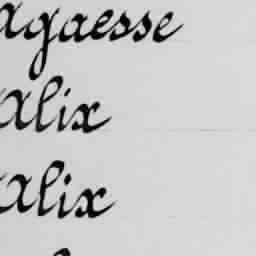 agaesse
Alix
Alix